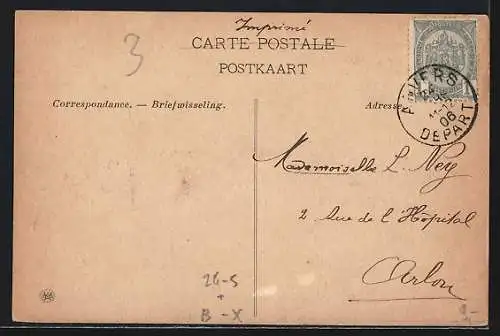 Imprimé
3
CARTE POSTALE
POSTKAART
Correspondance. — Briefwisseling.
Adresse
ANVERS
11-12
06
DEPART
Mademoiselle L. Ney
2 Rue de l'Hôpital
Arlon
26-5
+
B - X